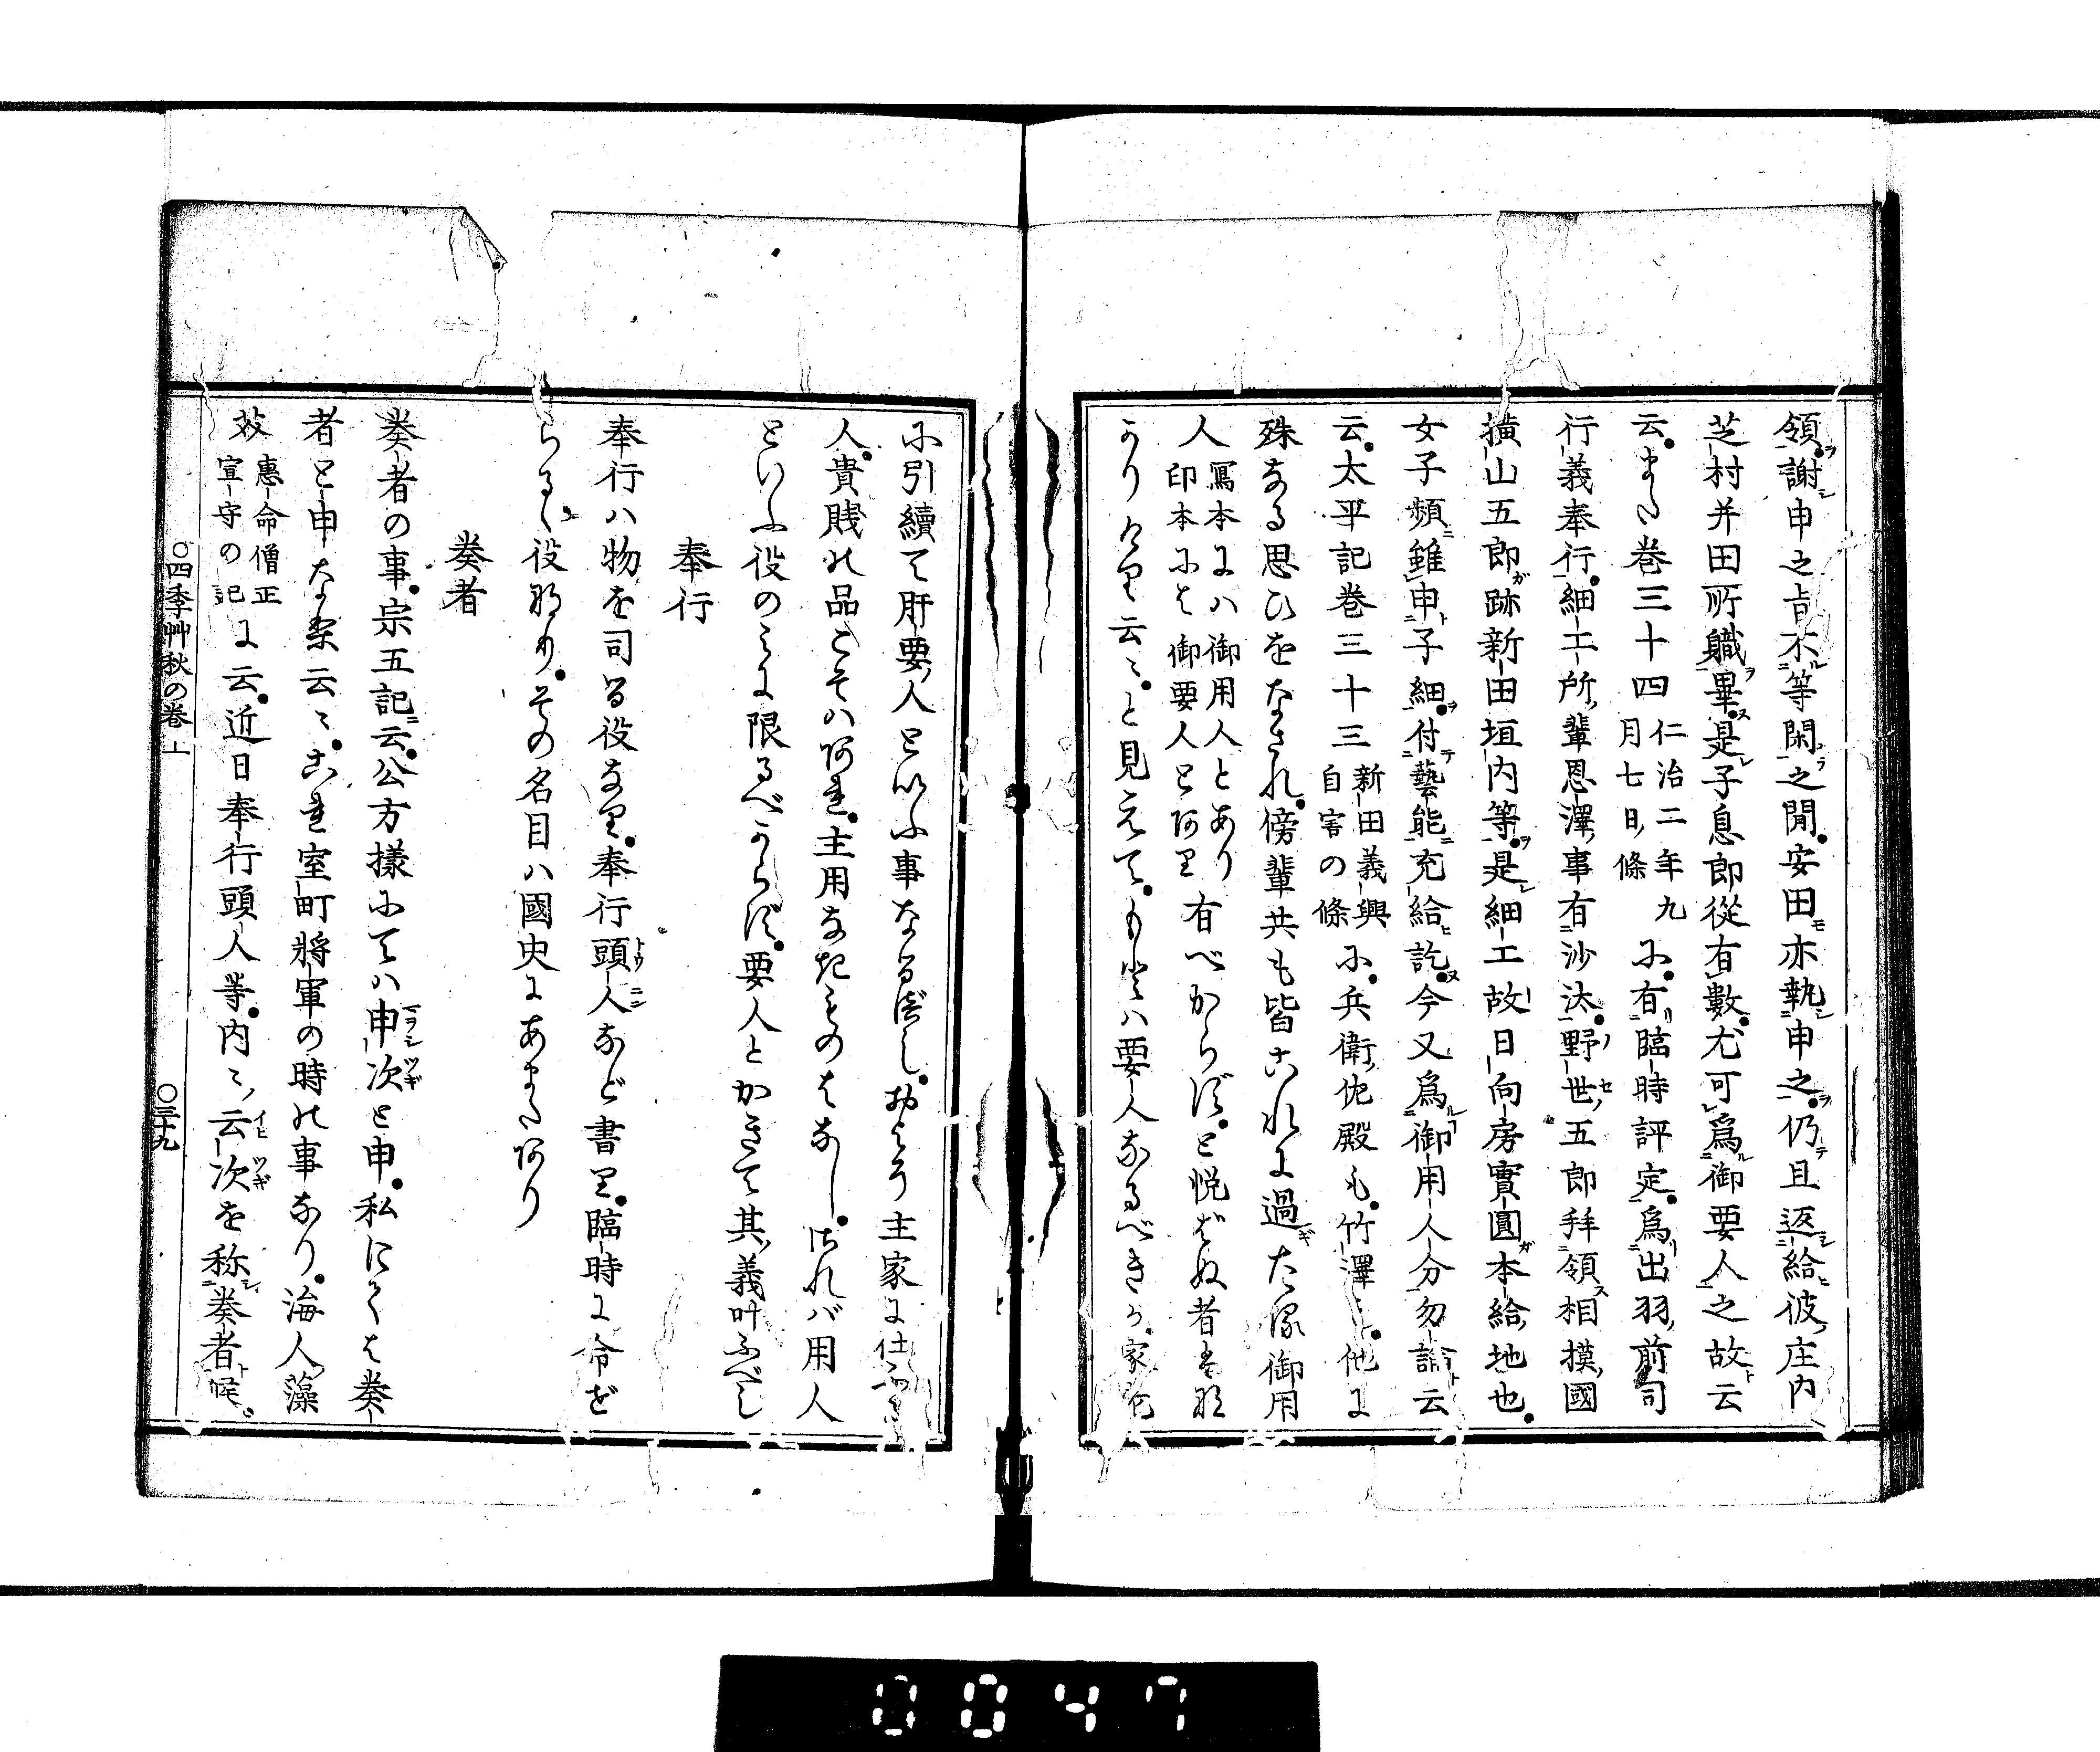 領謝申之旨不等閑之間安田亦執申之仍且返給彼庄内
芝村并田所職畢是子息郎従有數尤可爲御要人之故云
云また巻三十四仁治二年九月七日條に有臨時評定爲出羽前司
行義奉行細工所輩恩澤事有沙汰野世五郎拜領相摸國
横山五郎跡新田垣内等是細工故日向房實圓本給地也
女子頻雖申子細付藝能充給訖今又爲御用人分勿論云
云太平記巻三十三新田義興自害の條に兵衛佐殿も竹澤に他に
殊なる思ひをなされ傍輩共も皆これに過たる御用
人寫本には御用人とあり印本には御要人とあり有べからずと悦ばぬ者は
かりけり云々と見えてもとは要人なるべきか家
に引續て肝要人といふ事なるべしおよそ主家に仕
人貴賤の品こそはあれ主用なきものはなしされバ用人
といふ役のみに限るべからず要人とかきて其義叶ふべし
奉行
奉行ハ物を司る役なり奉行頭人など書り臨時に命ぜ
らるゝ役なりその名目ハ國史にあまたあり
奏者
奏者の事宗五記云公方様にてハ申次と申私にてハ奏
者と申なり云々これ室町將軍の時の事なり海人藻
芥惠命僧正宣守の記に云近日奉行頭人等内々云次を称奏者候
○四季艸秋の巻上
○三十九
0047